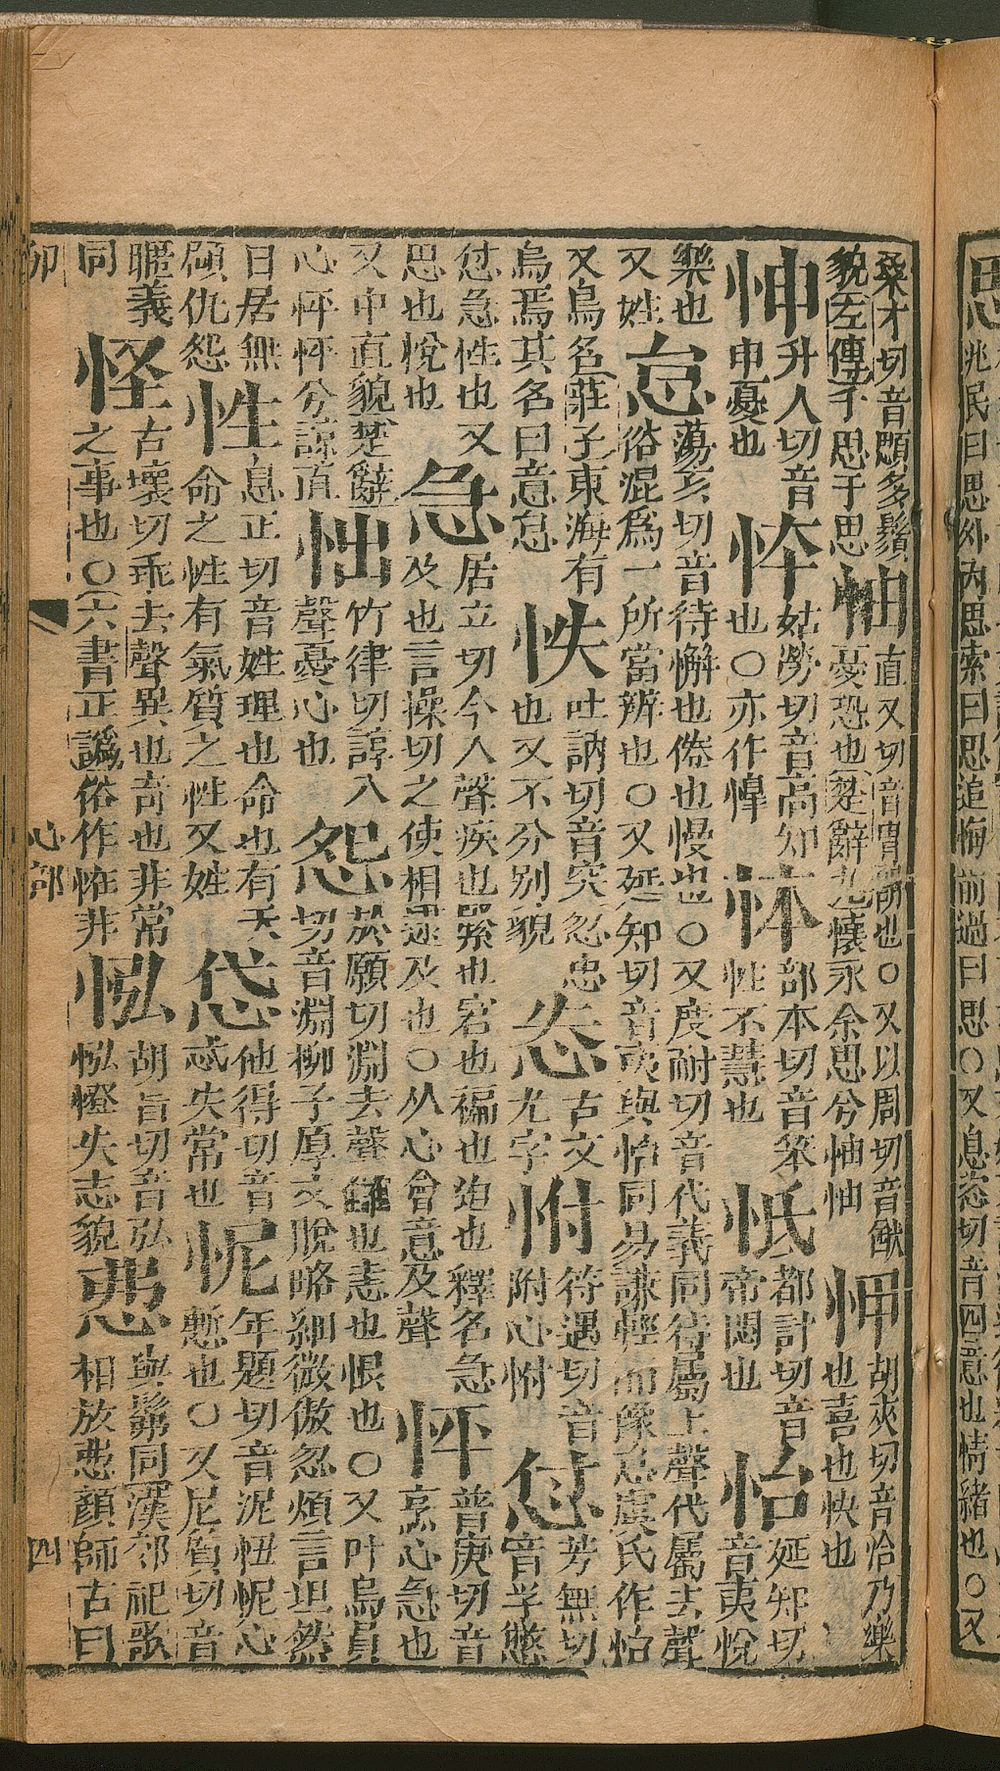 思兆民曰思外內思索曰思追悔前過曰思○又息恣切音四意也情緒也○又
桑才切音顋多鬚
貌左傳于思于思
怞
直又切音胄朗也○又以周切音猷
憂恐也楚辭九懷永余思兮怞怞
怬
胡夾切音洽乃樂
也喜也快也
㤊
升人切音
申憂也
㤒
姑勞切音高知
也○亦作㥛
㤓
部本切音笨
性不慧也
怟
都計切音
帝悶也
怡
延知切
音夷悅
樂也
又姓
怠
蕩亥切音待懈也倦也慢也○又度耐切音代義同待屬上聲代屬去聲
俗混爲一所當辨也○又延知切音夷與怡同易謙輕而豫怠虞氏作怡
又鳥名莊子東海有
鳥焉其名曰意怠
怢
吐訥切音突忽忘
也又不分別貌
㤑
古文
尤字
怤
待遇切音
附心怤
怤
芳無切
音孚悆
怤急性也又
思也悅也
急
居立切今入聲疾也緊也窘也褊也廹也釋名急
及也言操切之使相逮及也○从心會意及聲
怦
普庚切音
烹心急也
又中直貌楚辭
心怦怦兮諒直
怞
竹律切諄入
聲憂心也
怨
於願切淵去聲讎也恚也恨也○又叶烏員
切音淵柳子厚文脫略細微傲忽煩言坦然
日居無
顧仇怨
性
息正切音姓理也命也有天
命之性有氣質之性又姓
㤥
他得切音
忒失常也
怩
年題切音泥忸怩心
慙也○又尼質切音
暱義
同
怪
古壞切乖去聲異也奇也非常
之事也○六書正譌俗作恠非
㤋
胡肓切音弘
㤋憕失志貌
㤅
與鬀同漢郊祀歌
相放㤅顏師古曰
卯 心部 四